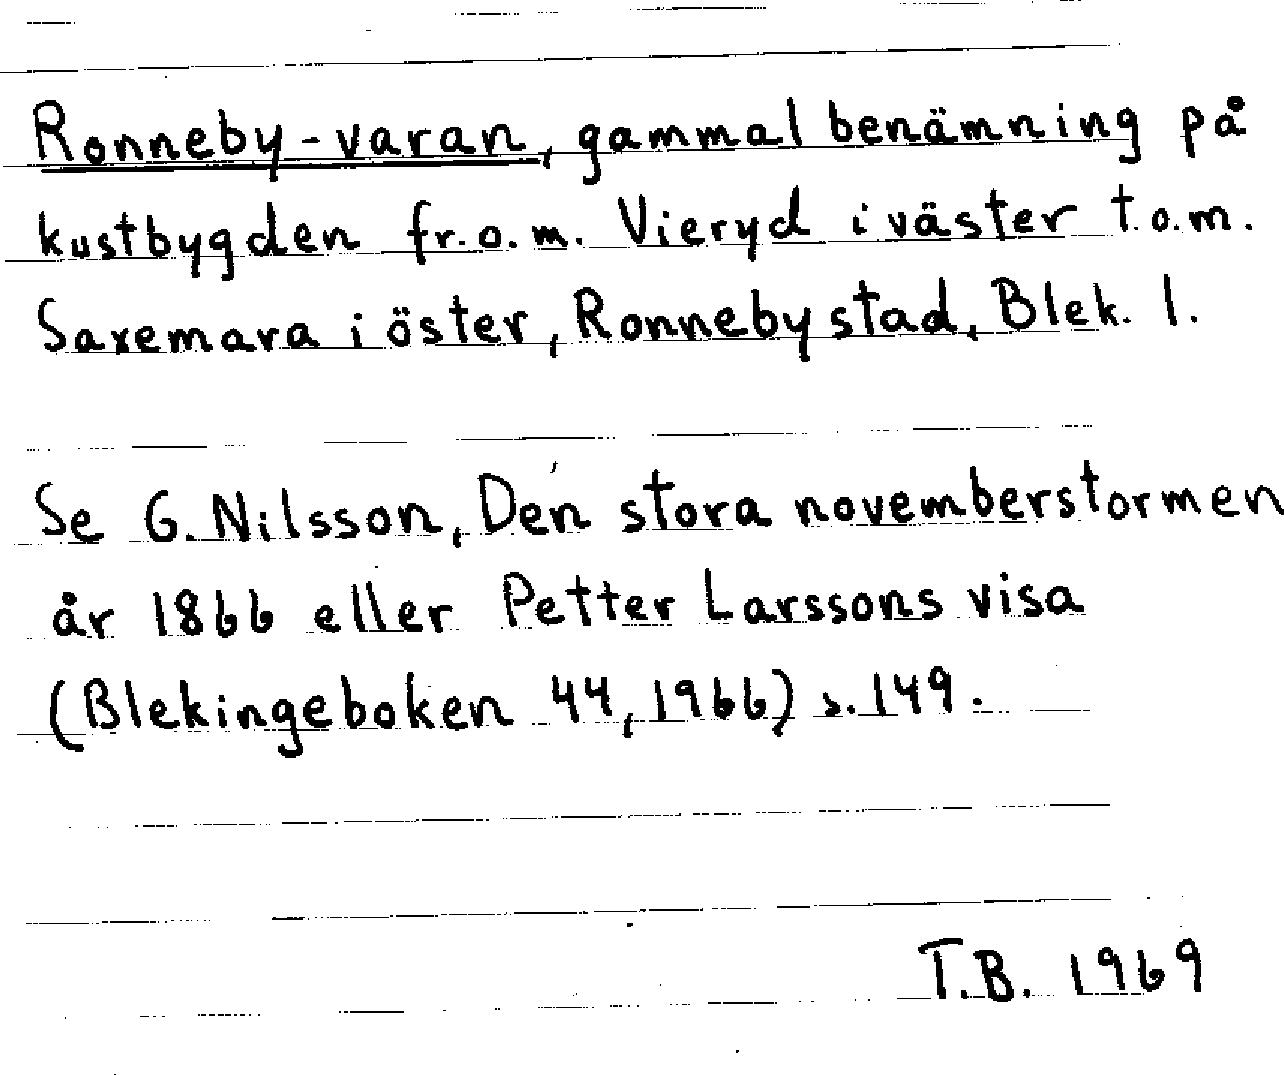 Ronneby-varan, gammal benämning på
kustbygden fr.o.m. Vieryd i väster t.o.m.
Saxemara i öster, Ronneby stad, Blek. l.
Se G. Nilsson, Den stora novemberstormen
år 1866 eller Petter Larssons visa
(Blekingeboken 44, 1966) s. 149.
T.B. 1969